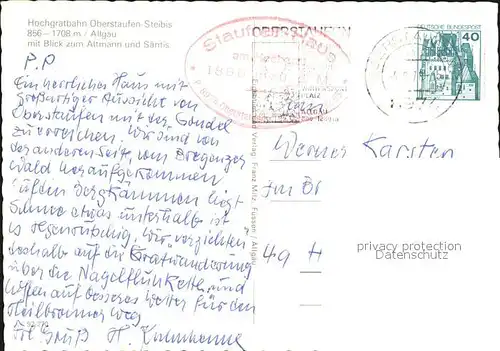 Hochgratbahn Oberstaufen-Steibis
856—1708 m / Allgäu
mit Blick zum Altmann und Säntis
P.P
Ein herrliches Haus mit
großartiger Aussicht von
Oberstaufen mit der Gondel
zu erreichen. Wir sind von
der anderen Seite, vom Bregenzer
Wald heraufgekommen
Auf den Bergkämmen liegt
Schnee etwas unterhalb ist
es regenrutschig. Wir verzichten
deshalb auf die Gratwanderung
über die Nagelfluhkette und
hoffen auf besseres Wetter für den
Heilbronner Weg
Gruß H.
OBERSTAUFEN
Staufner Haus
DEUTSCHE BUNDESPOST
40
Verlag Franz Milz, Füssen / Allgäu
Werner Karsten
Im Ör
49 H
privacy protection
Datenschutz